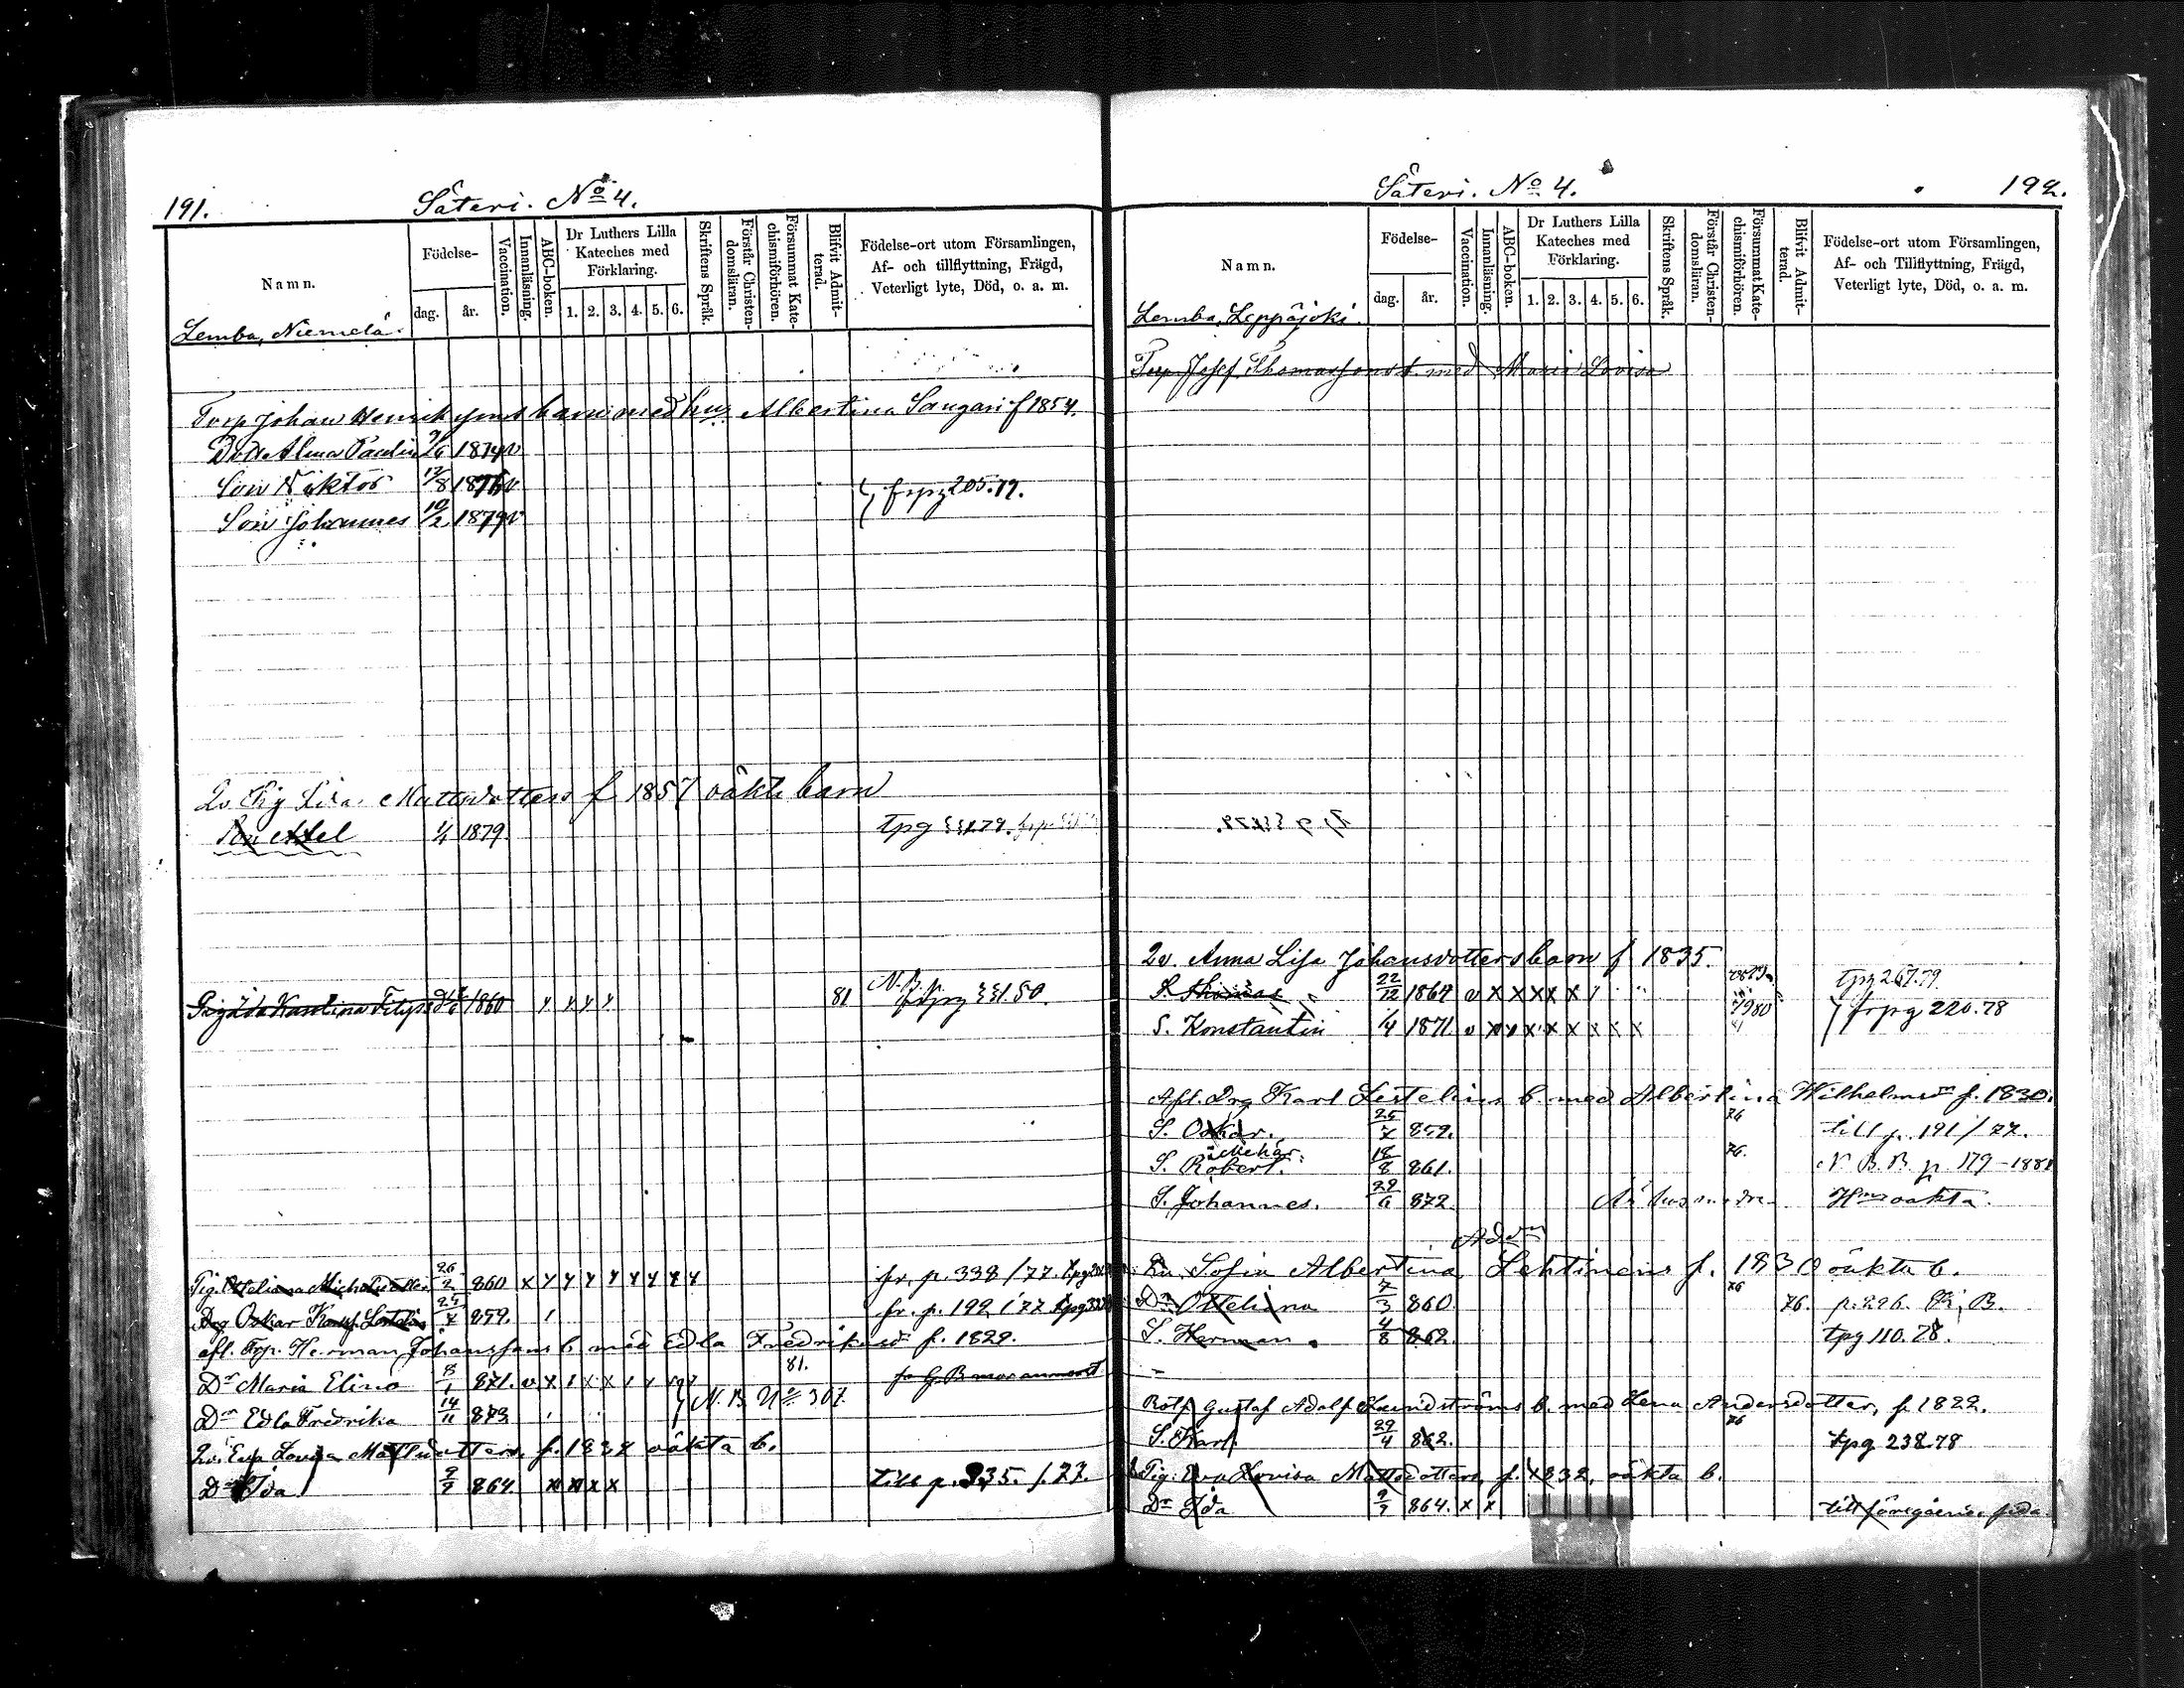 191.
Säteri. No 4.
Namn.
Födelse-
dag.
år.
Vaccination.
Innanläsning.
ABC-boken.
Dr Luthers Lilla Kateches med Förklaring.
1. 2. 3. 4. 5. 6.
Skriftens Språk.
Förstår Christen-domsläran.
Försummat Kate-chismiförhören.
Blifvit Admit-terad.
Födelse-ort utom Församlingen,
Af- och tillflyttning, Frägd,
Veterligt lyte, Död, o. a. m.
Lemba, Niemelä.
Torp Johan Henrikssons barn med hu Albertina Saugari f 1854.
Dottr Alma Paulin 9/6 1874 v
Son Viktor 17/8 1876 v frpg 205.79.
Son Johannes 10/2 1879 v
Qv Pig Lisa Mattsdotters f 1857 oäkta barn
Axel 1/4 1879. tpg 331.79.
Pig Ida Karolina 1860 x x x x 81 N.B. p. frpg 331.80.
Pig. Otteliana Michelsdotter 26/2 860 x x x x x x x x x fr. p. 338/77.
Drg Oskar Karlss. Lestelin 25/7 859. fr. p. 192/77
afl. Trp. Herman Johanssons b med Edla Fredriksdr f. 1829.
Dr Maria Elina 8/1 871. v x 81.
Dr Edla Fredrika 14/11 873 N. B. No 307.
Qv. Eva Lovisa Mattsdotters, f. 1832 oäkta b.
Dr Ida 9/7 864 x x x x till p. 335. /77.
Säteri. No 4.
192.
Namn.
Födelse-
dag.
år.
Vaccination.
Innanläsning.
ABC-boken.
Dr Luthers Lilla Kateches med Förklaring.
1. 2. 3. 4. 5. 6.
Skriftens Språk.
Förstår Christen-domsläran.
Försummat Kate-chismiförhören.
Blifvit Admit-terad.
Födelse-ort utom Församlingen,
Af- och Tillflyttning, Frägd,
Veterligt lyte, Död, o. a. m.
Lemba, Leppäjoki.
Torp. Josef Thomassons b. med Maria Lovisa
Qv. Anna Lisa Johansdotters barn f 1835.
S. Thomas 22/12 1864 v x x x x x tpg 267.79.
S. Konstantin 1/4 1871. v x x x x x x x x 7980 frpg 220.78
Afl. Drg Karl Lestelins b. med Albertina Wilhelmsdr f. 1830.
S. Oskar. 25/7 859. 76 till p. 191/77.
S. Robert. 18/8 861. 76. N. B. B. p. 179-1881
S. Johannes. 29/6 872. oäkta.
Sofia Albertina Lehtinens f. 1830 oäkta b.
Dr Otteliana 7/3 860. 76 76. p. 296. K. B.
S. Herman. 4/8 862. tpg 110.78.
Rotf. Gustaf Adolf Lundströms b. med Lena Andersdotter, f. 1822.
S. Karl 29/4 862. 76 tpg 238.78
Pig. Eva Lovisa Mattsdotters, f. 1832, oäkta b.
Dr Ida 9/7 864. x x till föregående sida.